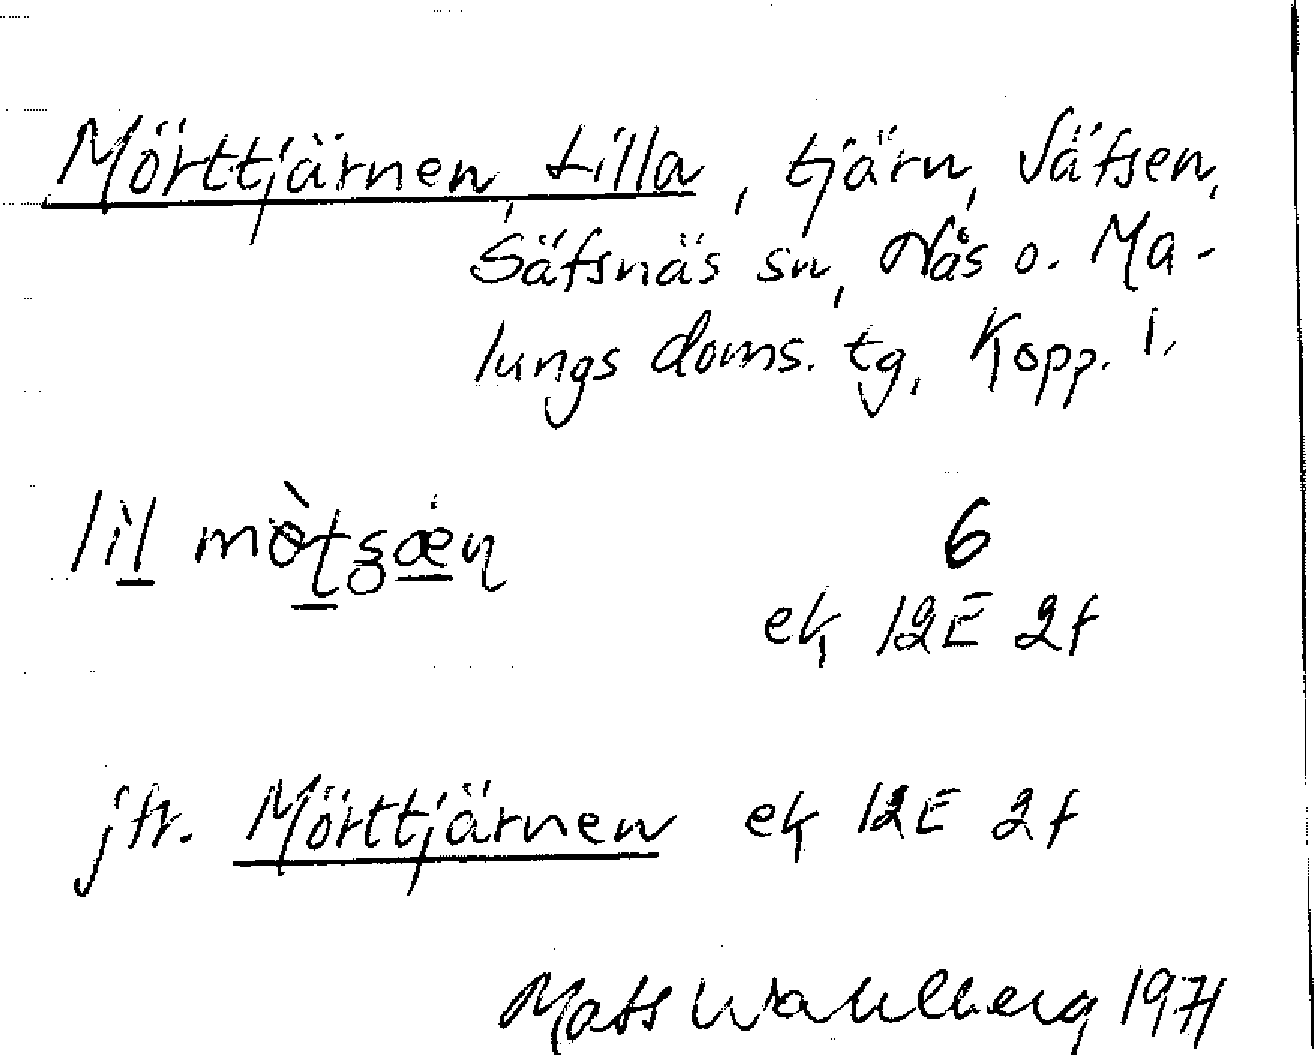 Mörttjärnen, Lilla, tjärn, Säfsen,
Säfsnäs sn, Nås o. Ma-
lungs doms. tg, Kopp. l.
lìl
6
ek 12E 2f
jfr. Mörttjärnen ek 12E 2f
Mats Wahlberg 1971